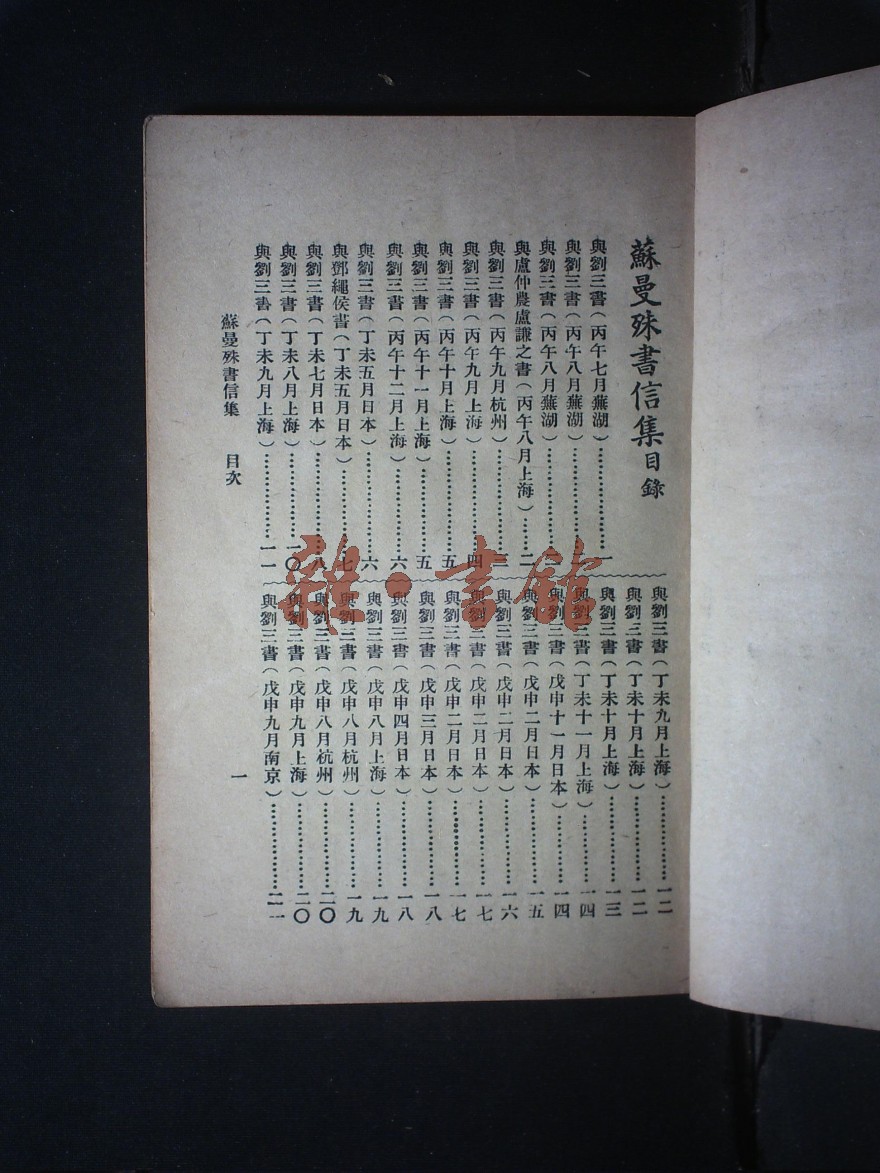 蘇曼殊書信集目錄
與劉三書(丙午七月蕪湖)………………一
與劉三書(丙午八月蕪湖)………………
與劉三書(丙午八月蕪湖)………………
與盧仲農盧謙之書(丙午八月上海)……二
與劉三書(丙午九月杭州)………………三
與劉三書(丙午九月上海)………………四
與劉三書(丙午十月上海)………………五
與劉三書(丙午十一月上海)……………五
與劉三書(丙午十二月上海)……………六
與劉三書(丁未五月日本)………………六
與鄧繩侯書(丁未五月日本)……………七
與劉三書(丁未七月日本)………………八
與劉三書(丁未八月上海)………………一〇
與劉三書(丁未九月上海)………………一一
與劉三書(丁未九月上海)………………一二
與劉三書(丁未十月上海)………………一二
與劉三書(丁未十月上海)………………一三
與劉三書(丁未十一月上海)……………一四
與劉三書(戊申十一月日本)……………一四
與劉三書(戊申二月日本)………………一五
與劉三書(戊申二月日本)………………一六
與劉三書(戊申二月日本)………………一七
與劉三書(戊申二月日本)………………一七
與劉三書(戊申三月日本)………………一八
與劉三書(戊申四月日本)………………一八
與劉三書(戊申八月上海)………………一九
與劉三書(戊申八月杭州)………………一九
與劉三書(戊申八月杭州)………………二〇
與劉三書(戊申九月上海)………………二〇
與劉三書(戊申九月南京)………………二一
蘇曼殊書信集 目次 一
雜·書館